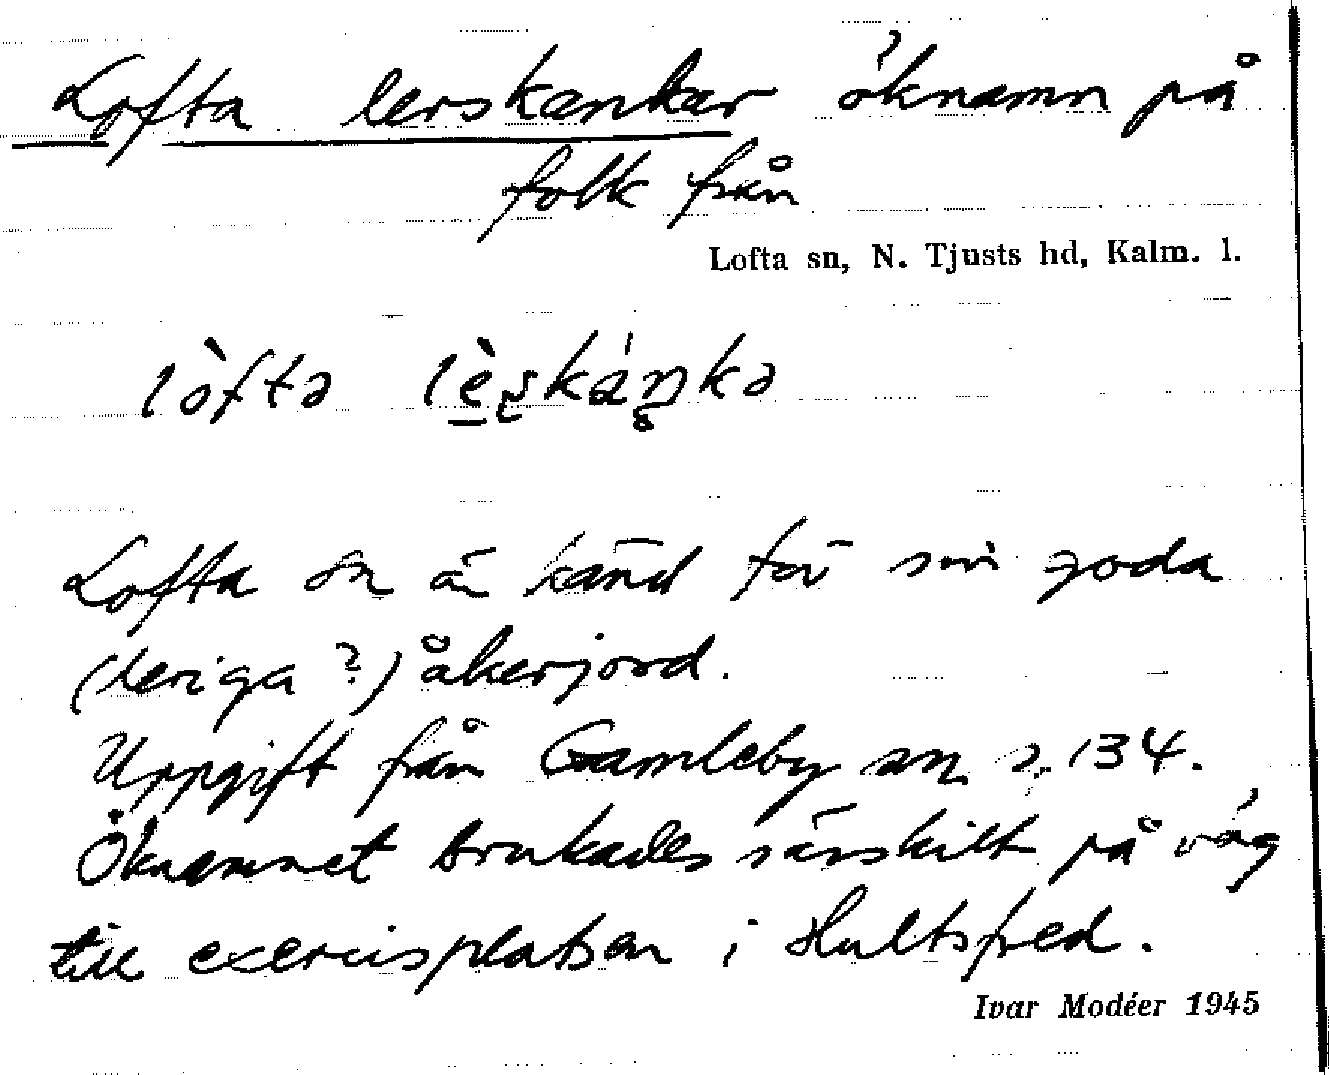 Lofta lerskankar öknamn på
folk från
Lofta sn, N. Tjusts hd, Kalm. l.
lòftə
Lofta sn är känd för sin goda
(leriga?) åkerjord.
Uppgift från Gamleby sn s. 134.
Öknamnet brukades särskilt på väg
till exercisplatsen i Hultsfred.
Ivar Modéer 1945